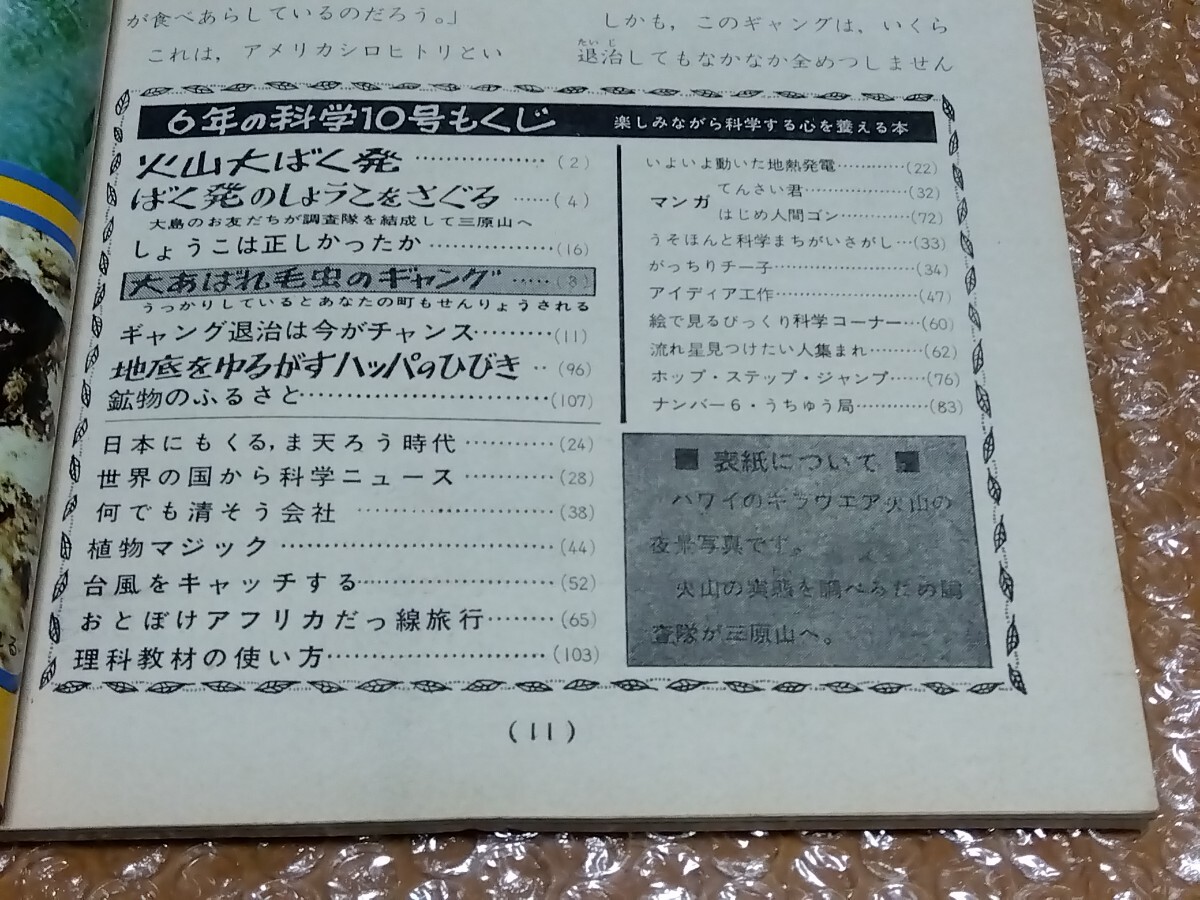 が食べあらしているのだろう。」
これは，アメリカシロヒトリとい
しかも，このギャングは，いくら
たいじ
退治してもなかなか全めつしません
6年の科学10号もくじ 楽しみながら科学する心を養える本
火山大ばく発……………(2)
ばく発のしょうこをさぐる……(4)
大島のお友だちが調査隊を結成して三原山へ
しょうこは正しかったか……………(16)
大あばれ毛虫のギャング……
うっかりしているとあなたの町もせんりょうされる
ギャング退治は今がチャンス………(11)
地底をゆるがすハッパのひびき‥(96)
鉱物のふるさと………………………(107)
日本にもくる,ま天ろう時代…………(24)
世界の国から科学ニュース…………(28)
何でも清そう会社…………………(38)
植物マジック…………………………(44)
台風をキャッチする…………………(52)
おとぼけアフリカだっ線旅行………(65)
理科教材の使い方……………………(103)
いよいよ動いた地熱発電…………(22)
マンガ
てんさい君………………(32)
はじめ人間ゴン…………(72)
うそほんと科学まちがいさがし…(33)
がっちりチー子…………………(34)
アイディア工作…………………(47)
絵で見るびっくり科学コーナー…(60)
流れ星見つけたい人集まれ………(62)
ホップ・ステップ・ジャンプ……(76)
ナンバー6・うちゅう局…………(83)
■ 表紙について ■
ハワイのキラウエア火山の
夜景写真です。
火山の実態を調べるための調
査隊が三原山へ。
(11)